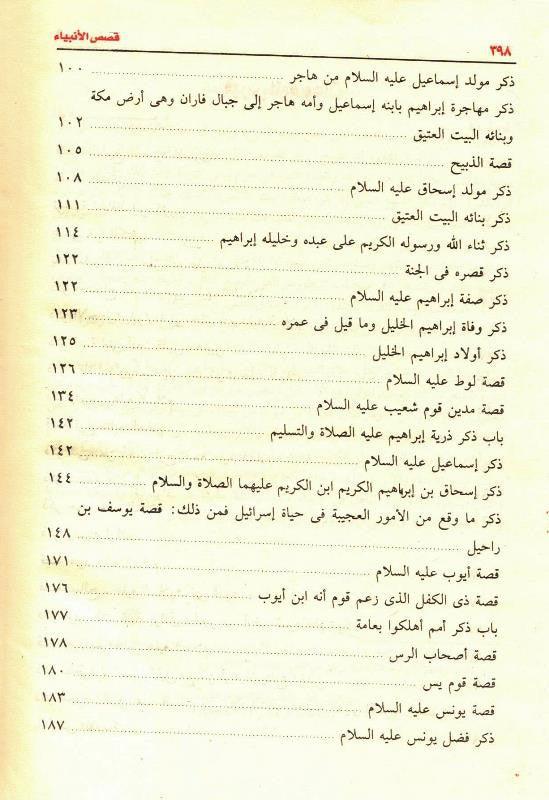 قصص الأنبياء ٣٩٨
ذكر مولد إسماعيل عليه السلام من هاجر ١٠٠
ذكر مهاجرة إبراهيم بابنه إسماعيل وأمه هاجر إلى جبال فاران وهى أرض مكة
وبنائه البيت العتيق ١٠٢
قصة الذبيح ١٠٥
ذكر مولد إسحاق عليه السلام ١٠٨
ذكر بنائه البيت العتيق ١١١
ذكر ثناء الله ورسوله الكريم على عبده وخليله إبراهيم ١١٤
ذكر قصره فى الجنة ١٢٢
ذكر صفة إبراهيم عليه السلام ١٢٢
ذكر وفاة إبراهيم الخليل وما قيل فى عمره ١٢٣
ذكر أولاد إبراهيم الخليل ١٢٥
قصة لوط عليه السلام ١٢٦
قصة مدين قوم شعيب عليه السلام ١٣٤
باب ذكر ذرية إبراهيم عليه الصلاة والتسليم ١٤٢
ذكر إسماعيل عليه السلام ١٤٢
ذكر إسحاق بن إبراهيم الكريم ابن الكريم عليهما الصلاة والسلام ١٤٤
ذكر ما وقع من الأمور العجيبة فى حياة إسرائيل فمن ذلك: قصة يوسف بن
راحيل ١٤٨
قصة أيوب عليه السلام ١٧١
قصة ذى الكفل الذى زعم قوم أنه ابن أيوب ١٧٦
باب ذكر أمم أهلكوا بعامة ١٧٧
قصة أصحاب الرس ١٧٨
قصة قوم يس ١٨٠
قصة يونس عليه السلام ١٨٣
ذكر فضل يونس عليه السلام ١٨٧